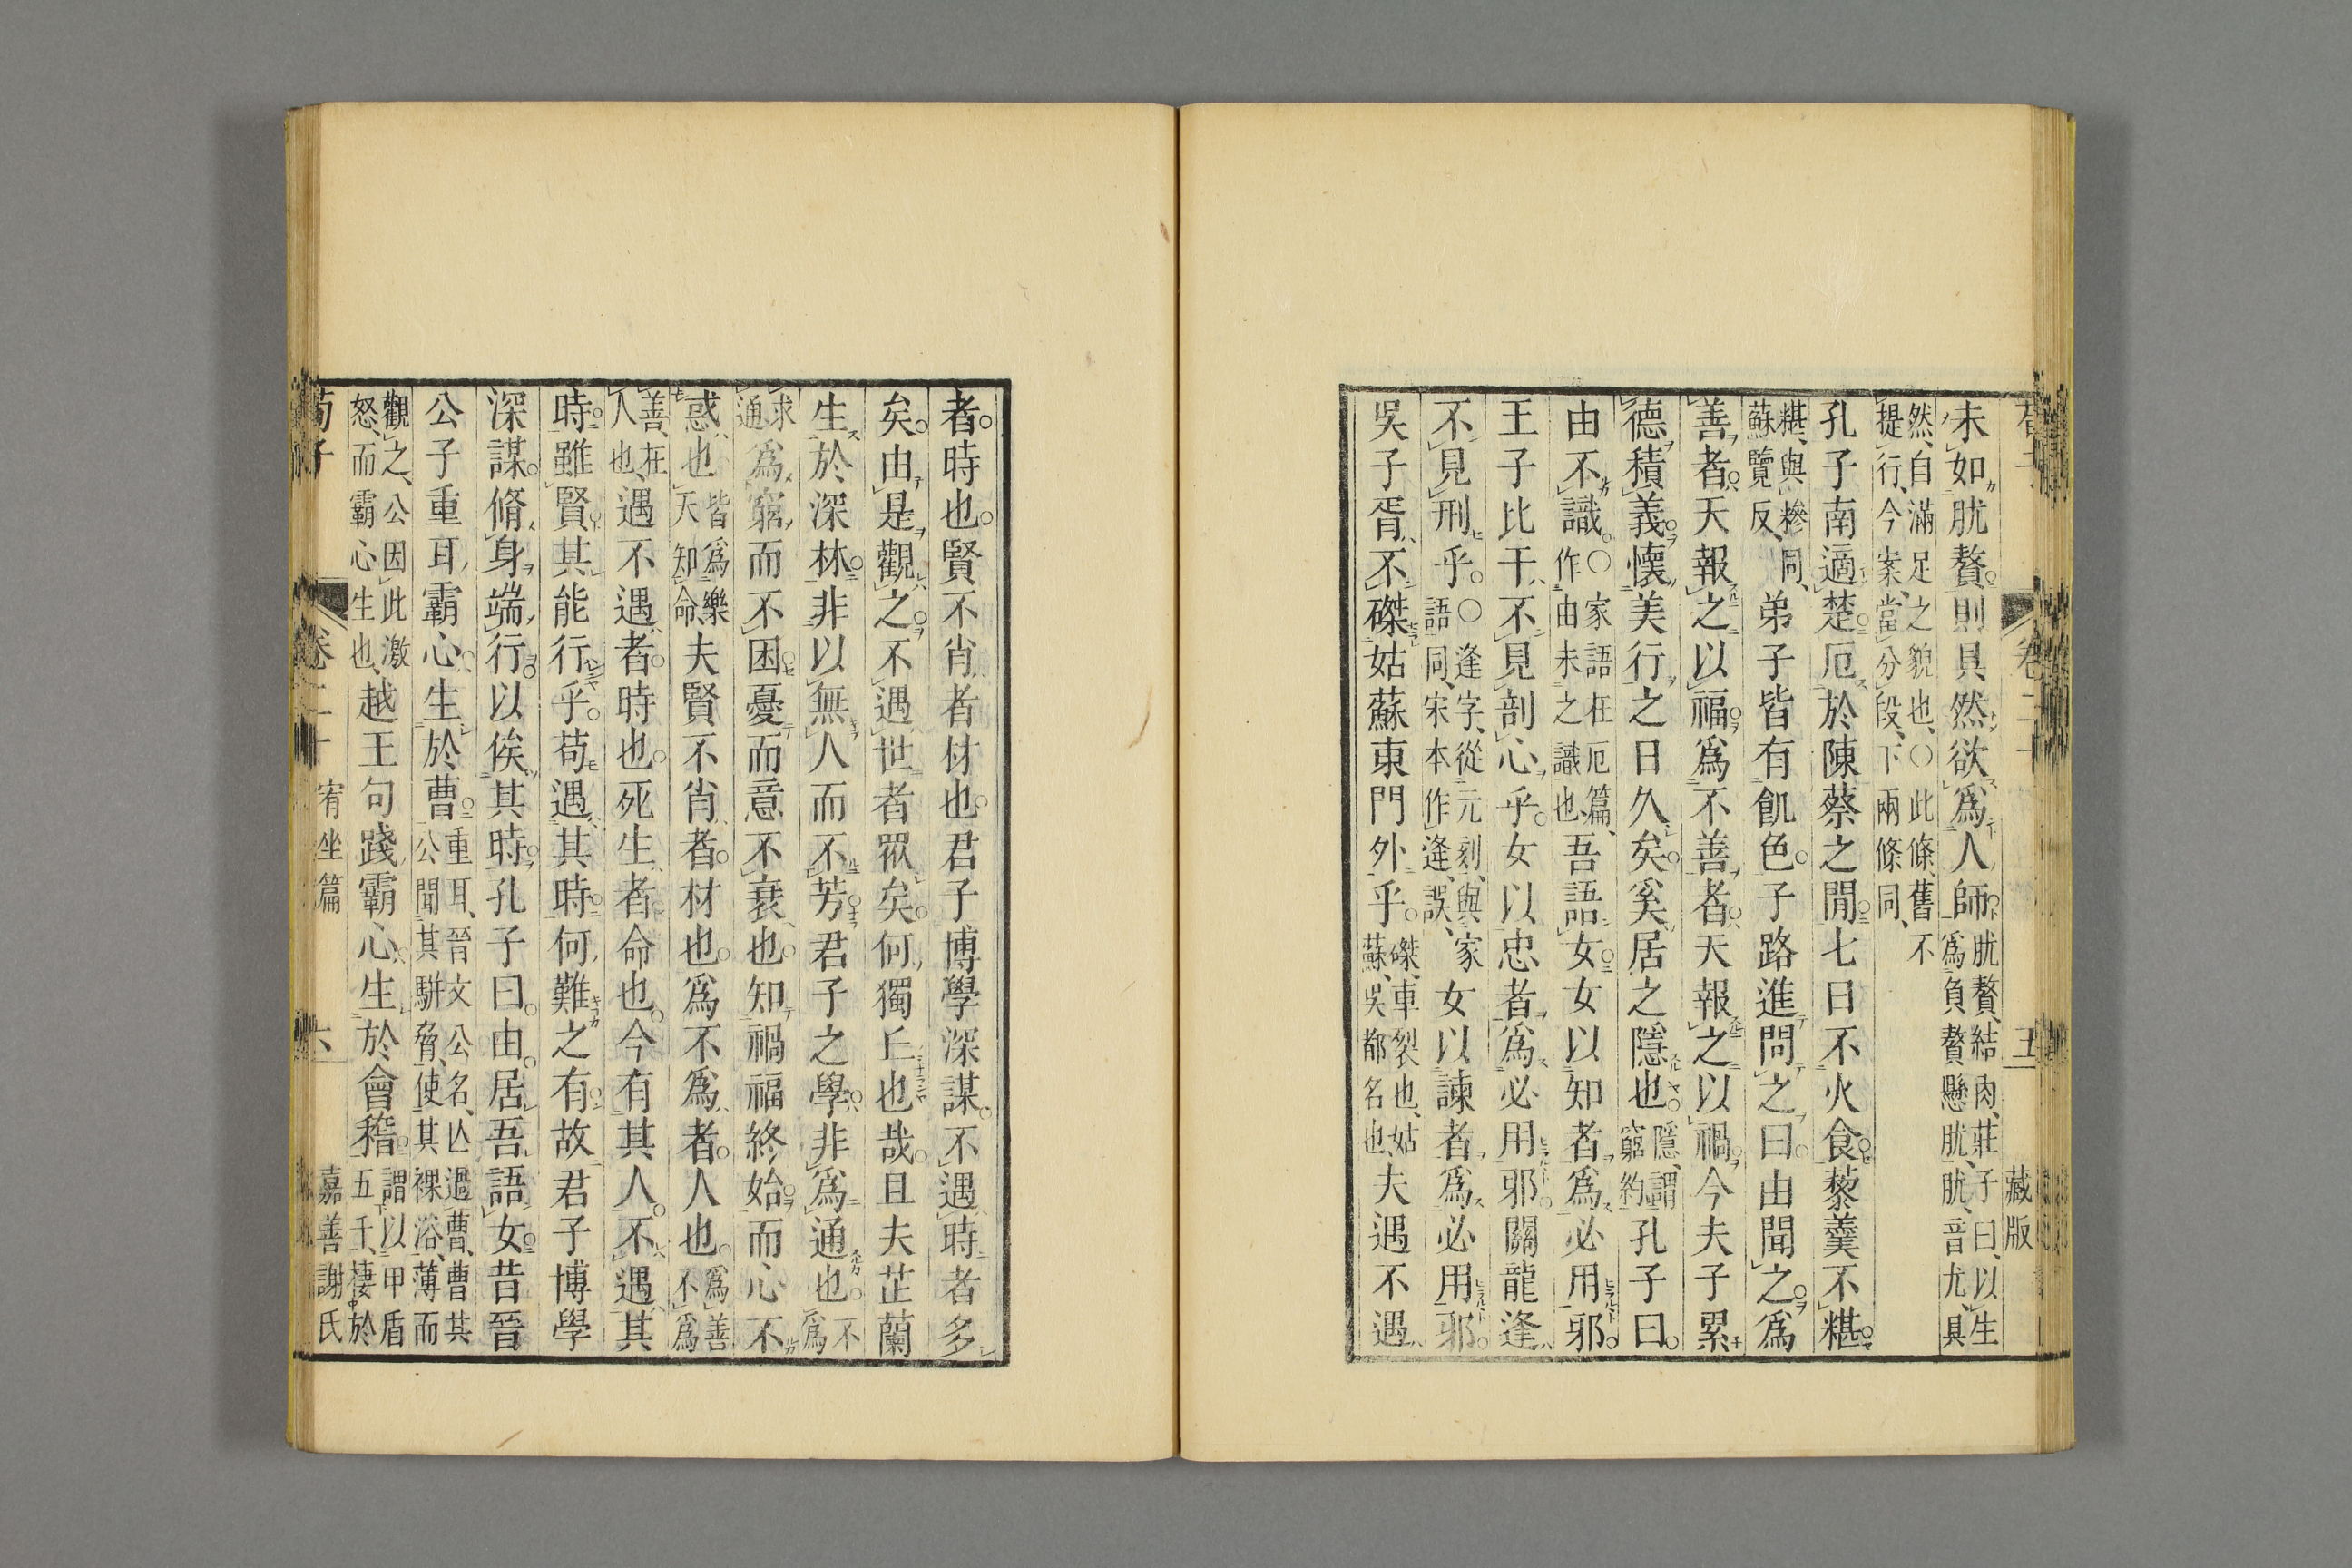 未如肬贅則具然欲爲人師肬贅、結肉、莊子曰、以生爲負贅懸肬、肬、音尤、具
然、自滿足之貌也、○此條、舊不提行、今案、當分段、下兩條同、
孔子南適楚厄於陳蔡之閒七日不火食藜羹不糂
糂、與糝同、蘇覽反、弟子皆有飢色子路進問之曰由聞之爲
善者天報之以福爲不善者天報之以禍今夫子累
德積義懷美行之日久矣奚居之隱也隱、謂窮約孔子曰
由不識○家語在厄篇、作由未之識也、吾語女女以知者爲必用邪
王子比干不見剖心乎女以忠者爲必用邪關龍逢
不見刑乎○逢字、從元刻、與家語同、宋本作逄、誤、女以諫者爲必用邪
吳子胥不磔姑蘇東門外乎磔、車裂也、姑蘇、吳都名也、夫遇不遇
卷二十
五
藏版
者時也賢不肖者材也君子博學深謀不遇時者多
矣由是觀之不遇世者眾矣何獨丘也哉且夫芷蘭
生於深林非以無人而不芳君子之學非爲通也不爲
求通爲窮而不困憂而意不衰也知禍福終始而心不
惑也皆爲樂天知命、夫賢不肖者材也爲不爲者人也爲善不爲
善、在人也、遇不遇者時也死生者命也今有其人不遇其
時雖賢其能行乎苟遇其時何難之有故君子博學
深謀脩身端行以俟其時孔子曰由居吾語女昔晉
公子重耳霸心生於曹重耳、晉文公名、亾過曹、曹共公聞其駢脅、使其裸浴、薄而
觀之、公因此激怒、而霸心生也、越王句踐霸心生於會稽謂以甲盾五千、棲於
荀子
卷二十
宥坐篇
六
嘉善謝氏